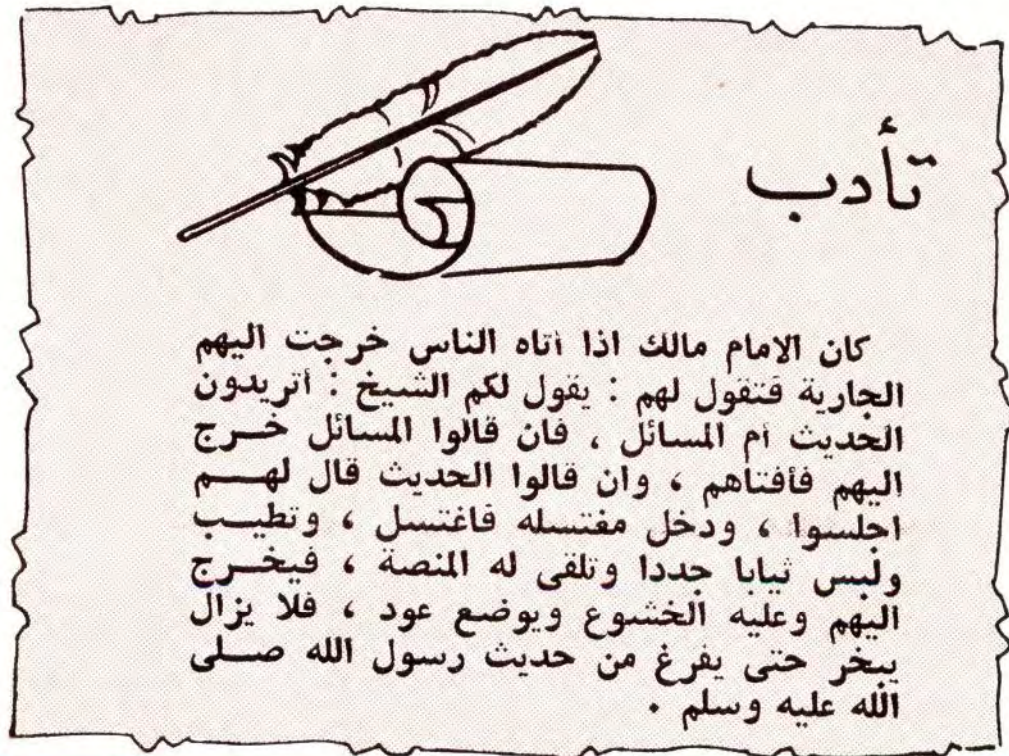 تأدب
كان الامام مالك اذا أتاه الناس خرجت اليهم
الجارية فتقول لهم : يقول لكم الشيخ : أتريدون
الحديث أم المسائل ، فان قالوا المسائل خرج
اليهم فأفتاهم ، وان قالوا الحديث قال لهم
اجلسوا ، ودخل مغتسله فاغتسل ، وتطيب
ولبس ثيابا جددا وتلقى له المنصة ، فيخرج
اليهم وعليه الخشوع ويوضع عود ، فلا يزال
يبخر حتى يفرغ من حديث رسول الله صلى
الله عليه وسلم .